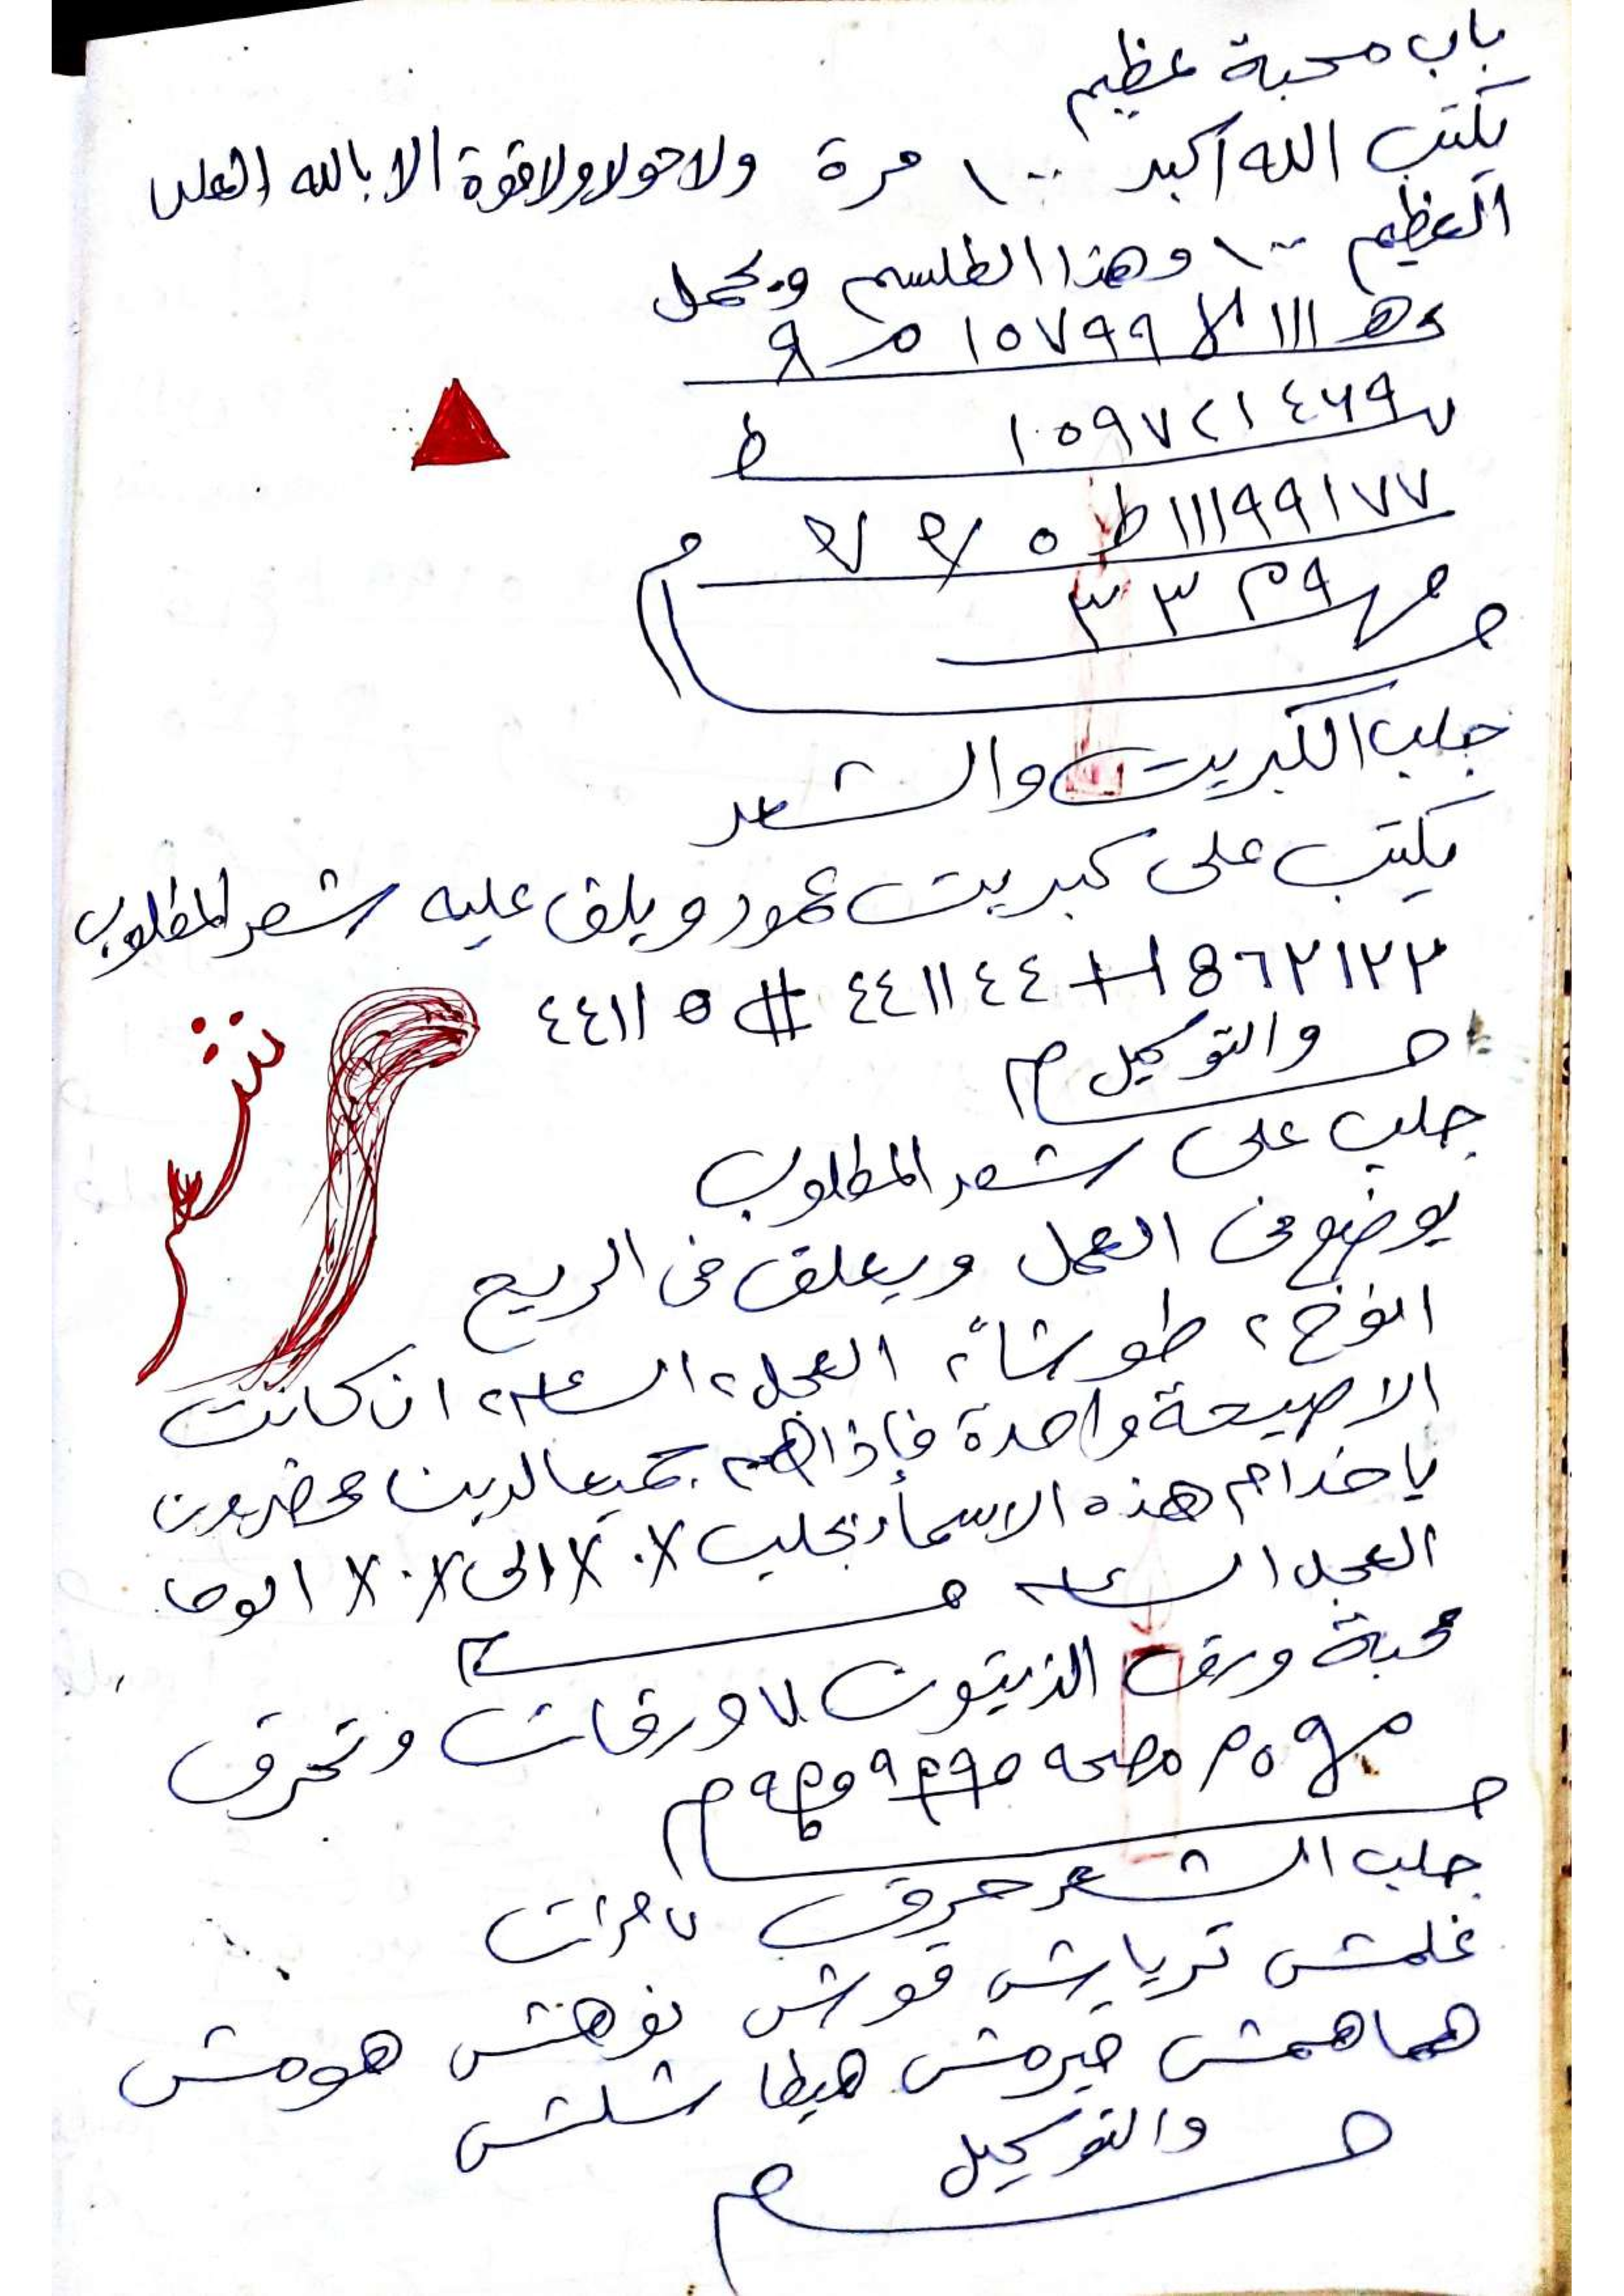 باب محبة عظيم
يكتب الله أكبر ١٠٠ مرة ولا حولا ولا قوة الا بالله العلى
العظيم ١٠٠ وهذا الطلسم ويحمل
١١١ ١٥٧٩٩
١٠٥٩٧٢١٤٦٩ ط
١١١٩٩١٧٧ ط ٥
٣ ٣
جلب الكبريت والشعر
يكتب على كبريت عمود ويلف عليه شعر المطلوب
٤٤١١ # ٤٤١١٤٤
والتوكيل
جلب على شعر المطلوب
يوضع فى العمل ويعلق فى الريح
انوخ ٢ طوشا ٢ العجل ٢ الساعة ٢ ان كانت
الا صيحة واحدة فإذا هم جميعا لدينا محضرون
يا خدام هذه الاسماء بجلب الى الوحا
العجل الساعة
محبة ورق الزيتون ٧ ورقات وتحرق
جلب الشعر حرق ٧ مرات
غلمش ترياش قوش نوهش هومش
هماهمش خيرمش هيطا شلش
والتوكيل